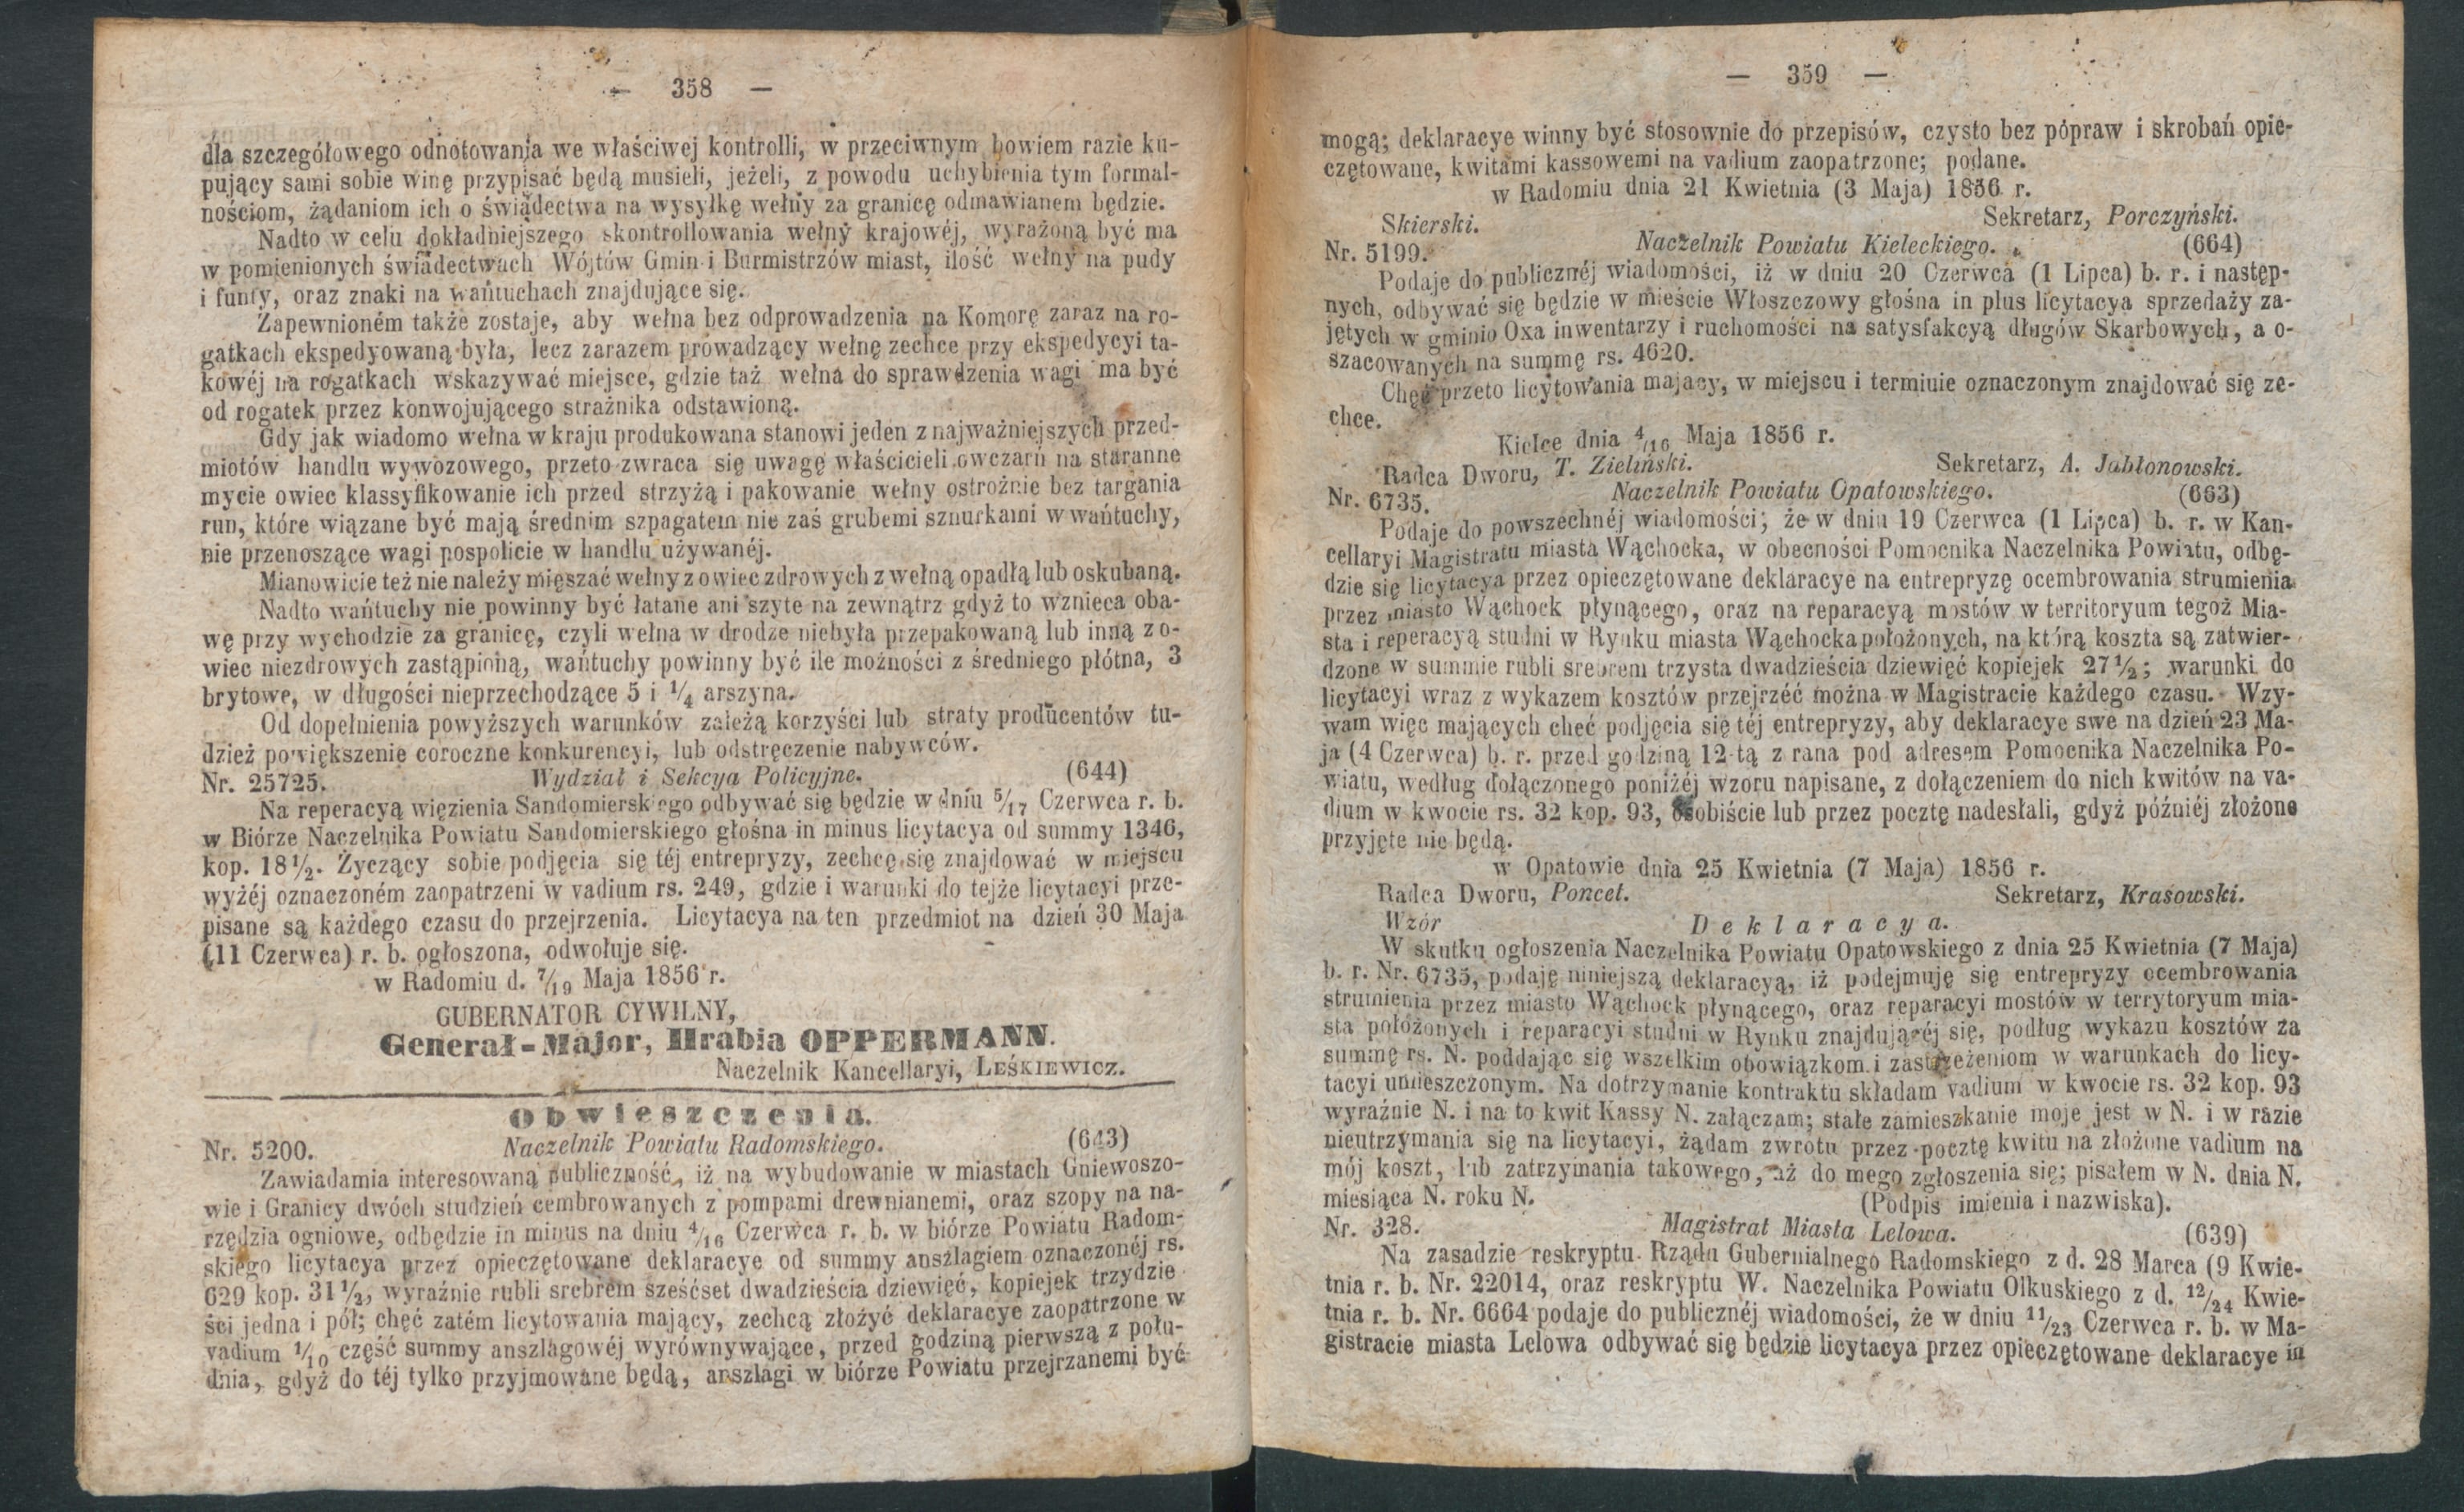 — 358 —
dla szczegółowego odnotowania we właściwej kontrolli, w przeciwnym bowiem razie ku-
pujący sami sobie winę przypisać będą musieli, jeżeli, z powodu uchybienia tym formal-
nościom, żądaniom ich o świądectwa na wysyłkę wełny za granicę odmawianem będzie.
Nadto w celu dokładniejszego skontrollowania wełny krajowéj, wyrażoną być ma
w pomienionych świadectwach Wójtów Gmin i Burmistrzów miast, ilość wełny na pudy
i funty, oraz znaki na wańtuchach znajdujące się.
Zapewnioném także zostaje, aby wełna bez odprowadzenia na Komorę zaraz na ro-
gatkach ekspedyowaną była, lecz zarazem prowadzący wełnę zechce przy ekspedycyi ta-
kowéj na rogatkach wskazywać miejsce, gdzie taż wełna do sprawdzenia wagi ma być
od rogatek przez konwojującego strażnika odstawioną.
Gdy jak wiadomo wełna w kraju produkowana stanowi jeden z najważniejszych przed-
miotów handlu wywozowego, przeto zwraca się uwagę właścicieli owczarń na staranne
mycie owiec klassyfikowanie ich przed strzyżą i pakowanie wełny ostrożnie bez targania
run, które wiązane być mają średnim szpagatem nie zaś grubemi sznurkami w wańtuchy,
nie przenoszące wagi pospolicie w handlu używanéj.
Mianowicie też nie należy mięszać wełny z owiec zdrowych z wełną opadłą lub oskubaną.
Nadto wańtuchy nie powinny być łatane ani szyte na zewnątrz gdyż to wznieca oba-
wę przy wychodzie za granicę, czyli wełna w drodze niebyła przepakowaną lub inną z o-
wiec niezdrowych zastąpioną, wańtuchy powinny być ile możności z średniego płótna, 3
brytowe, w długości nieprzechodzące 5 i 1/4 arszyna.
Od dopełnienia powyższych warunków zależą korzyści lub straty producentów tu-
dzież powiększenie coroczne konkurencyi, lub odstręczenie nabywców.
Nr. 25725. Wydział i Sekcya Policyjne. (644)
Na reperacyą więzienia Sandomierskiego odbywać się będzie w dniu 5/17 Czerwca r. b.
w Biórze Naczelnika Powiatu Sandomierskiego głośna in minus licytacya od summy 1346,
kop. 18 1/2. Życzący sobie podjęcia się téj entrepryzy, zechcę się znajdować w miejscu
wyżéj oznaczoném zaopatrzeni w vadium rs. 249, gdzie i warunki do tejże licytacyi prze-
pisane są każdego czasu do przejrzenia. Licytacya na ten przedmiot na dzień 30 Maja
(11 Czerwca) r. b. ogłoszona, odwołuje się.
w Radomiu d. 7/19 Maja 1856 r.
GUBERNATOR CYWILNY,
Generał-Major, Hrabia OPPERMANN.
Naczelnik Kancellaryi, LEŚKIEWICZ.
Obwieszczenia.
Nr. 5200. Naczelnik Powiatu Radomskiego. (643)
Zawiadamia interesowaną publiczność, iż na wybudowanie w miastach Gniewoszo-
wie i Granicy dwóch studzień cembrowanych z pompami drewnianemi, oraz szopy na na-
rzędzia ogniowe, odbędzie in minus na dniu 4/16 Czerwca r. b. w biórze Powiatu Radom-
skiego licytacya przez opieczętowane deklaracye od summy anszlagiem oznaczonéj rs.
629 kop. 31 1/2, wyraźnie rubli srebrem sześćset dwadzieścia dziewięć, kopiejek trzydzie
ści jedna i pół; chęć zatém licytowania mający, zechcą złożyć deklaracye zaopatrzone w
vadium 1/10 część summy anszlagowéj wyrównywające, przed godziną pierwszą z połu-
dnia, gdyż do téj tylko przyjmowane będą, anszlagi w biórze Powiatu przejrzanemi być
— 359 —
mogą; deklaracye winny być stosownie do przepisów, czysto bez popraw i skrobań opie-
czętowane, kwitami kassowemi na vadium zaopatrzone; podane.
w Radomiu dnia 21 Kwietnia (3 Maja) 1856 r.
Skierski. Sekretarz, Porczyński.
Nr. 5199. Naczelnik Powiatu Kieleckiego. (664)
Podaje do publicznéj wiadomości, iż w dniu 20 Czerwca (1 Lipca) b. r. i następ-
nych, odbywać się będzie w mieście Włoszczowy głośna in plus licytacya sprzedaży za-
jętych w gminie Oxa inwentarzy i ruchomości na satysfakcyą długów Skarbowych, a o-
szacowanych na summę rs. 4620.
Chęć przeto licytowania mający, w miejscu i terminie oznaczonym znajdować się ze-
chce.
Kielce dnia 4/16 Maja 1856 r.
Radca Dworu, T. Zieliński. Sekretarz, A. Jabłonowski.
Nr. 6735. Naczelnik Powiatu Opatowskiego. (663)
Podaje do powszechnéj wiadomości, że w dniu 19 Czerwca (1 Lipca) b. r. w Kan-
cellaryi Magistratu miasta Wąchocka, w obecności Pomocnika Naczelnika Powiatu, odbę-
dzie się licytacya przez opieczętowane deklaracye na entrepryzę ocembrowania strumienia
przez miasto Wąchock płynącego, oraz na reparacyą mostów w territoryum tegoż Mia-
sta i reperacyą studni w Rynku miasta Wąchocka położonych, na którą koszta są zatwier-
dzone w summie rubli srebrem trzysta dwadzieścia dziewięć kopiejek 27 1/2; warunki do
licytacyi wraz z wykazem kosztów przejrzéć można w Magistracie każdego czasu. Wzy-
wam więc mających cheć podjęcia się téj entrepryzy, aby deklaracye swe na dzień 23 Ma-
ja (4 Czerwca) b. r. przed godziną 12-tą z rana pod adresem Pomocnika Naczelnika Po-
wiatu, według dołączonego poniżéj wzoru napisane, z dołączeniem do nich kwitów na va-
dium w kwocie rs. 32 kop. 93, osobiście lub przez pocztę nadesłali, gdyż późniéj złożone
przyjęte nie będą.
w Opatowie dnia 25 Kwietnia (7 Maja) 1856 r.
Radca Dworu, Poncet. Sekretarz, Krasowski.
Wzór Deklaracya.
W skutku ogłoszenia Naczelnika Powiatu Opatowskiego z dnia 25 Kwietnia (7 Maja)
b. r. Nr. 6735, podaję niniejszą deklaracyą, iż podejmuję się entrepryzy ocembrowania
strumienia przez miasto Wąchock płynącego, oraz reparacyi mostów w terrytoryum mia-
sta położonych i reparacyi studni w Rynku znajdującéj się, podług wykazu kosztów za
summę rs. N. poddając się wszelkim obowiązkom i zastrzeżeniom w warunkach do licy-
tacyi umieszczonym. Na dotrzymanie kontraktu składam vadium w kwocie rs. 32 kop. 93
wyraźnie N. i na to kwit Kassy N. załączam; stałe zamieszkanie moje jest w N. i w razie
nieutrzymania się na licytacyi, żądam zwrotu przez pocztę kwitu na złożone vadium na
mój koszt, lub zatrzymania takowego, aż do mego zgłoszenia się; pisałem w N. dnia N.
miesiąca N. roku N. (Podpis imienia i nazwiska).
Nr. 328. Magistrat Miasta Lelowa. (639)
Na zasadzie reskryptu Rządu Gubernialnego Radomskiego z d. 28 Marca (9 Kwie-
tnia r. b. Nr. 22014, oraz reskryptu W. Naczelnika Powiatu Olkuskiego z d. 12/24 Kwie-
tnia r. b. Nr. 6664 podaje do publicznéj wiadomości, że w dniu 11/23 Czerwca r. b. w Ma-
gistracie miasta Lelowa odbywać się będzie licytacya przez opieczętowane deklaracye in